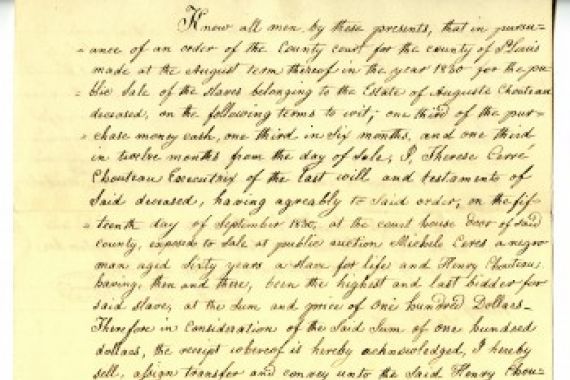 Know all men by these presents, that in pursu-
-ance of an order of the County court for the county of St Louis
made at the August term thereof in the year 1830 for the pu-
-blic Sale of the slaves belonging to the Estate of Auguste Chouteau
deceased, on the following terms to wit; one third of the pur-
-chase money cash, one third in Six months, and one third
in twelve months from the day of Sale, I, Therese Cerré
Chouteau Executrix of the last will and testaments of
Said deceased, having agreably to Said order, on the fif-
-teenth day of September 1830, at the court house door of Said
county, exposed to Sale at public auction Michele Ceres a negro
man aged Sixty years a slave for life; and Henry Chouteau;
having, then and there, been the highest and last bidder for
said slave, at the Sum and price of One hundred Dollars-
Therefore in Consideration of the Said Sum of one hundred
dollars, the receipt whereof is hereby acknowledged, I hereby
sell, assign transfer and convey unto the Said Henry Chou-